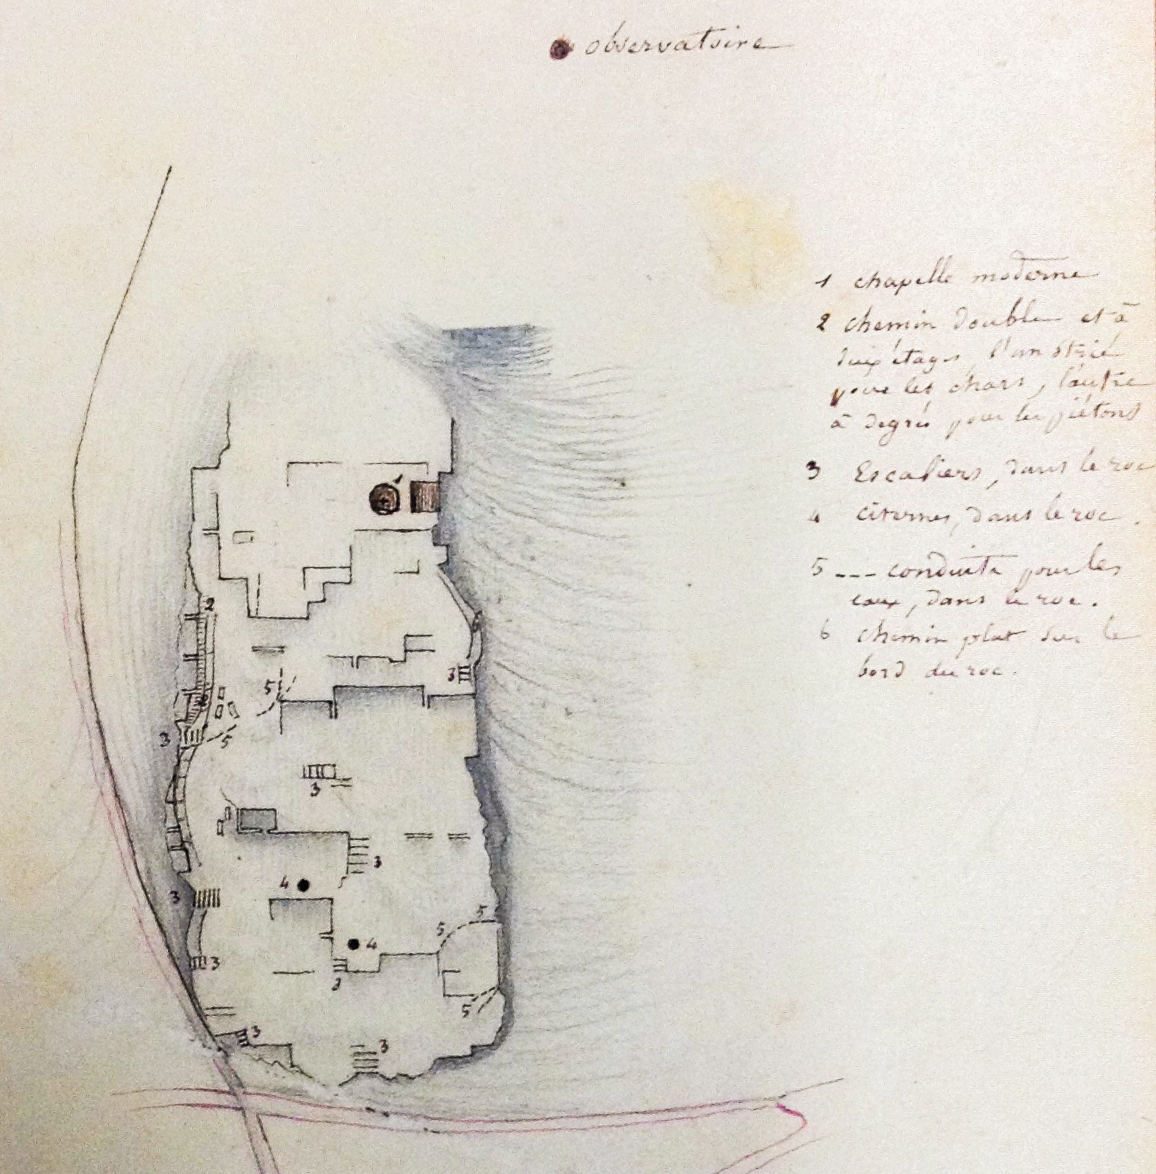 observatoire
1 chapelle moderne
2 chemin double et à
deux étages l'un strié
pour les chars, l'autre
à degrés pour les piétons
3 Escaliers, dans le roc
4 citernes, dans le roc.
5 --- conduits pour les
eaux, dans le roc.
6 chemin plat sur le
bord du roc.
1
2
6
3
5
2
3
5
3
3
4
3
5
5
4
3
3
5
3
3